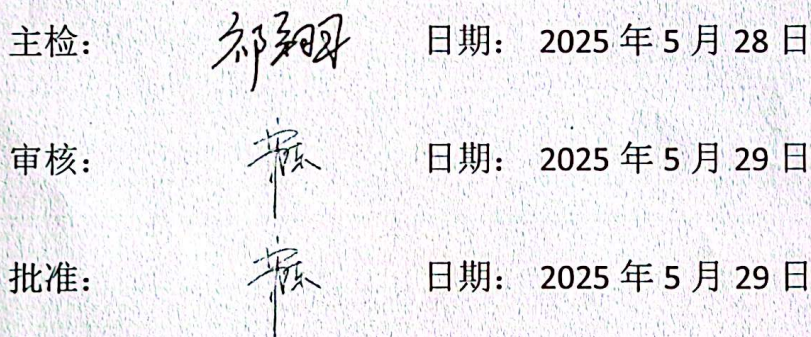 主检： 祁翔 日期： 2025 年 5 月 28 日
审核： 日期： 2025 年 5 月 29 日
批准： 日期： 2025 年 5 月 29 日